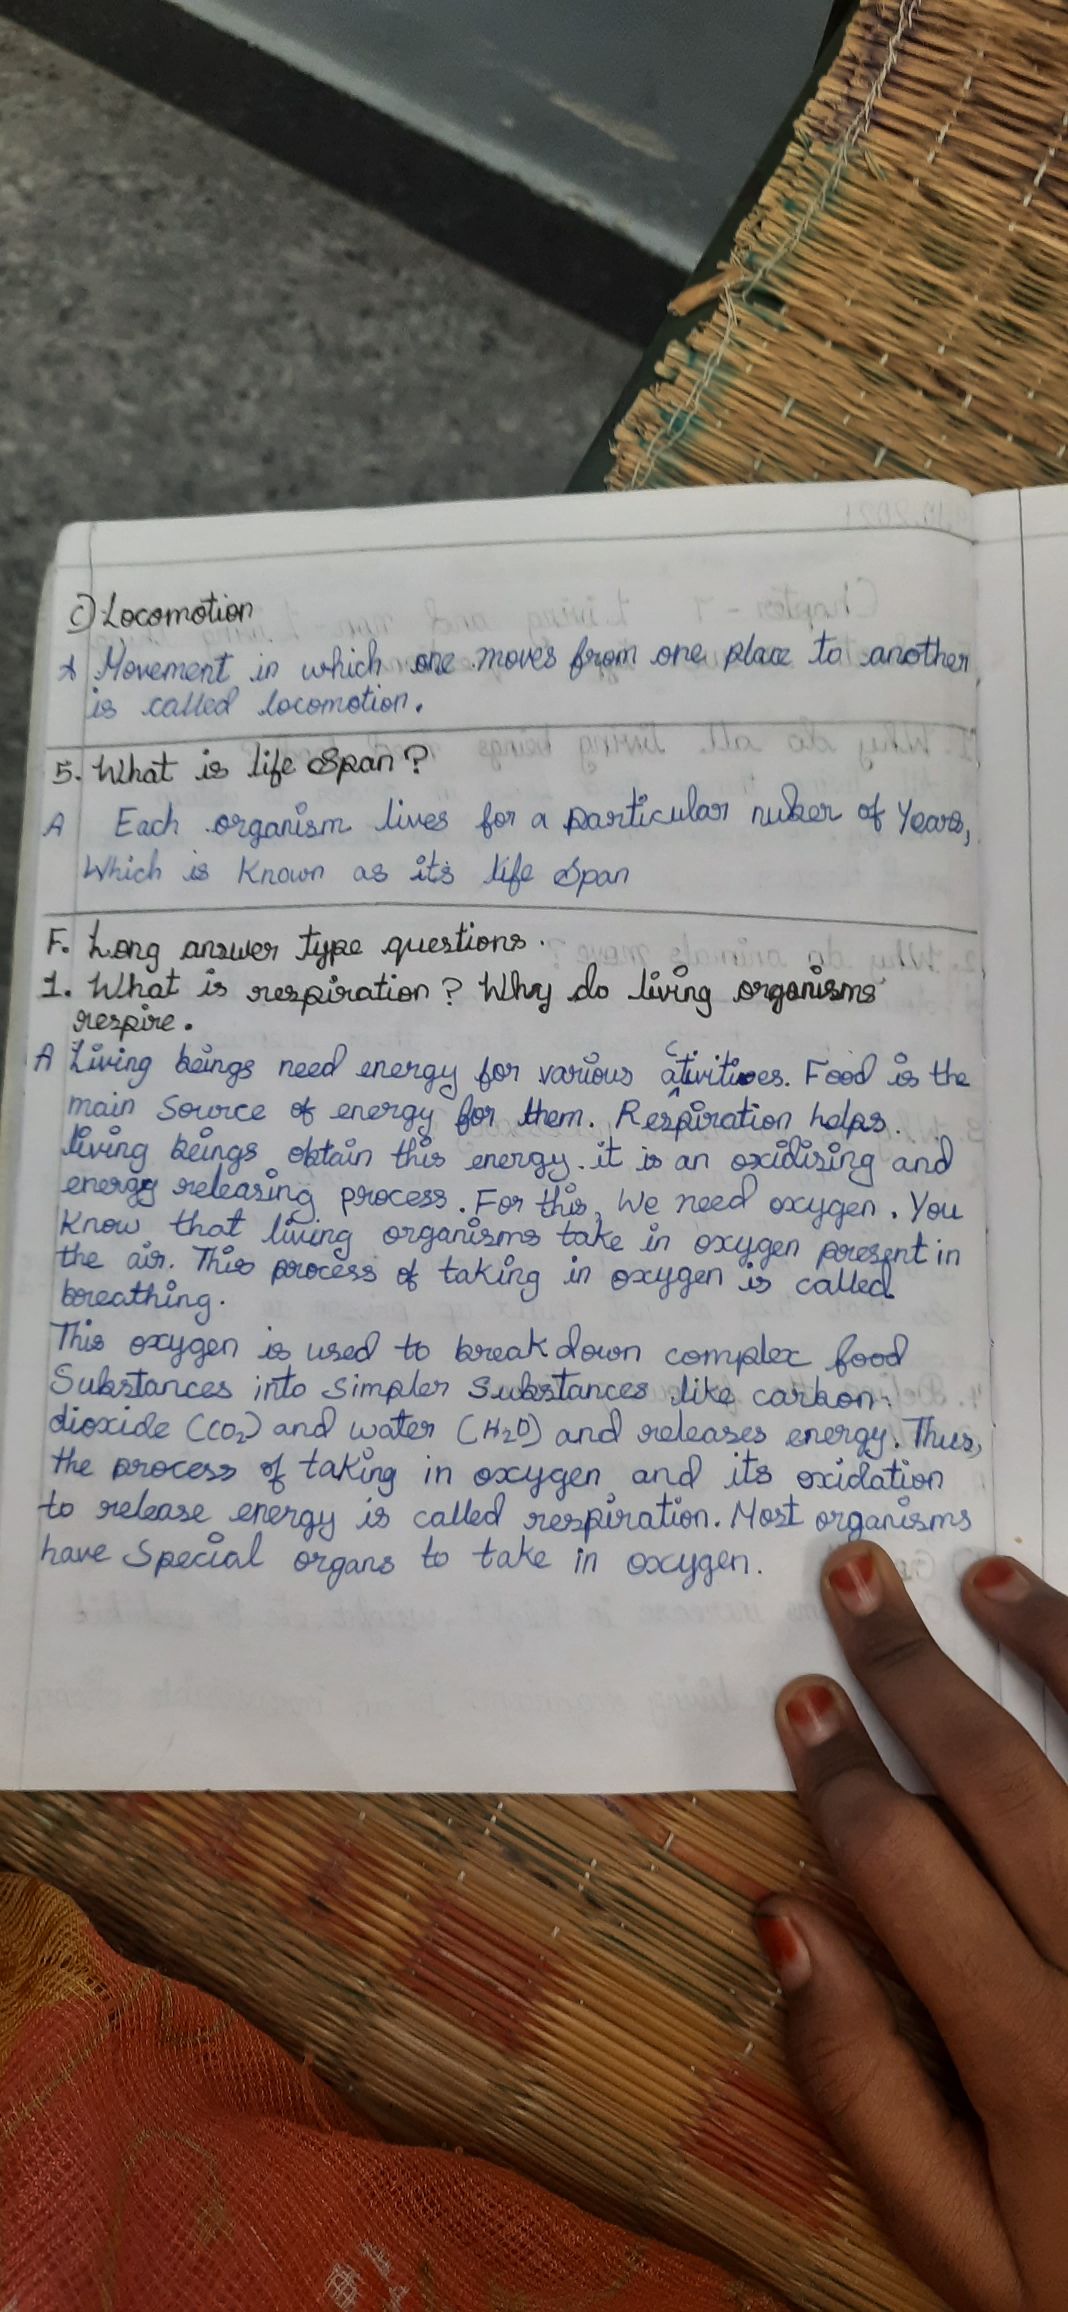 C) Locomotion
A Movement in which one moves from one place to another
is called locomotion.
5. What is life span?
A Each organism lives for a particular nuber of Years,
Which is Known as its life span
F. Long answer type questions.
1. What is respiration? Why do living organisms
respire.
A Living beings need energy for various activities. Food is the
main Source of energy for them. Respiration helps.
living beings obtain this energy. it is an oxidising and
energy releasing process. For this, We need oxygen. You
Know that living organisms take in oxygen present in
the air. This process of taking in oxygen is called
breathing.
This oxygen is used to break down complex food
Substances into simpler substances like carbon.
dioxide (CO₂) and water (H₂O) and releases energy. Thus,
the process of taking in oxygen and its oxidation
to release energy is called respiration. Most organisms
have Special organs to take in oxygen.